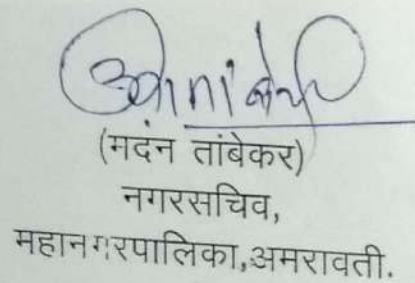 (मदंन तांबेकर)
नगरसचिव,
महानगरपालिका,अमरावती.